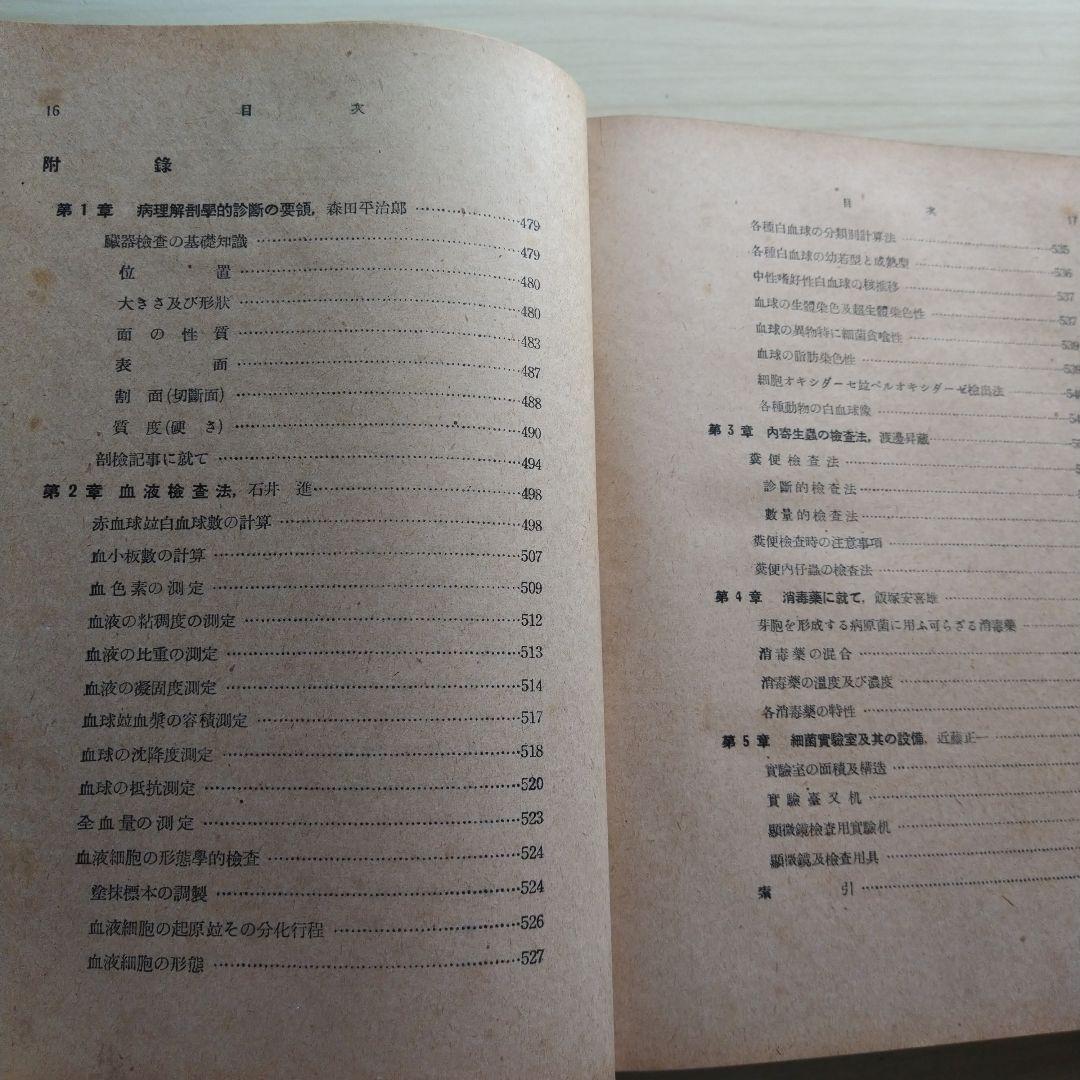 16 目次
附錄
第1章 病理解剖學的診斷の要領, 森田平治郞 479
臟器檢查の基礎知識 479
位置 480
大きさ及び形狀 480
面の性質 483
表面 487
割面(切斷面) 488
質度(硬さ) 490
剖檢記事に就て 494
第2章 血液檢查法, 石井進 498
赤血球竝白血球數の計算 498
血小板數の計算 507
血色素の測定 509
血液の粘稠度の測定 512
血液の比重の測定 513
血液の凝固度測定 514
血球竝血漿の容積測定 517
血球の沈降度測定 518
血球の抵抗測定 520
全血量の測定 523
血液細胞の形態學的檢查 524
塗抹標本の調製 524
血液細胞の起原竝その分化行程 526
血液細胞の形態 527
目次 17
各種白血球の分類別計算法 535
各種白血球の幼若型と成熟型 536
中性嗜好性白血球の核推移 537
血球の生體染色及超生體染色性 537
血球の異物特に細菌貪喰性 539
血球の脂肪染色性 539
細胞オキシダーゼ竝ペルオキシダーゼ檢出法 54
各種動物の白血球像 54
第3章 內寄生蟲の檢查法, 渡邊昇藏 5
糞便檢查法
診斷的檢查法
數量的檢查法
糞便檢查時の注意事項
糞便內仔蟲の檢查法
第4章 消毒藥に就て, 飯塚安喜雄
芽胞を形成する病原菌に用ふ可らざる消毒藥
消毒藥の混合
消毒藥の溫度及び濃度
各消毒藥の特性
第5章 細菌實驗室及其の設備, 近藤正一
實驗室の面積及構造
實驗臺又机
顯微鏡檢查用實驗机
顯微鏡及檢查用具
索引